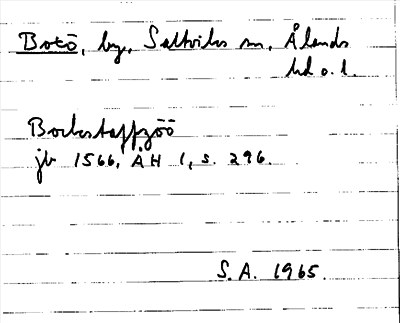 Botö, by, Saltviks sn, Ålands
hd o. l.
Bockstappzöö
jb 1566, ÅH 1, s. 296.
S.A. 1965.